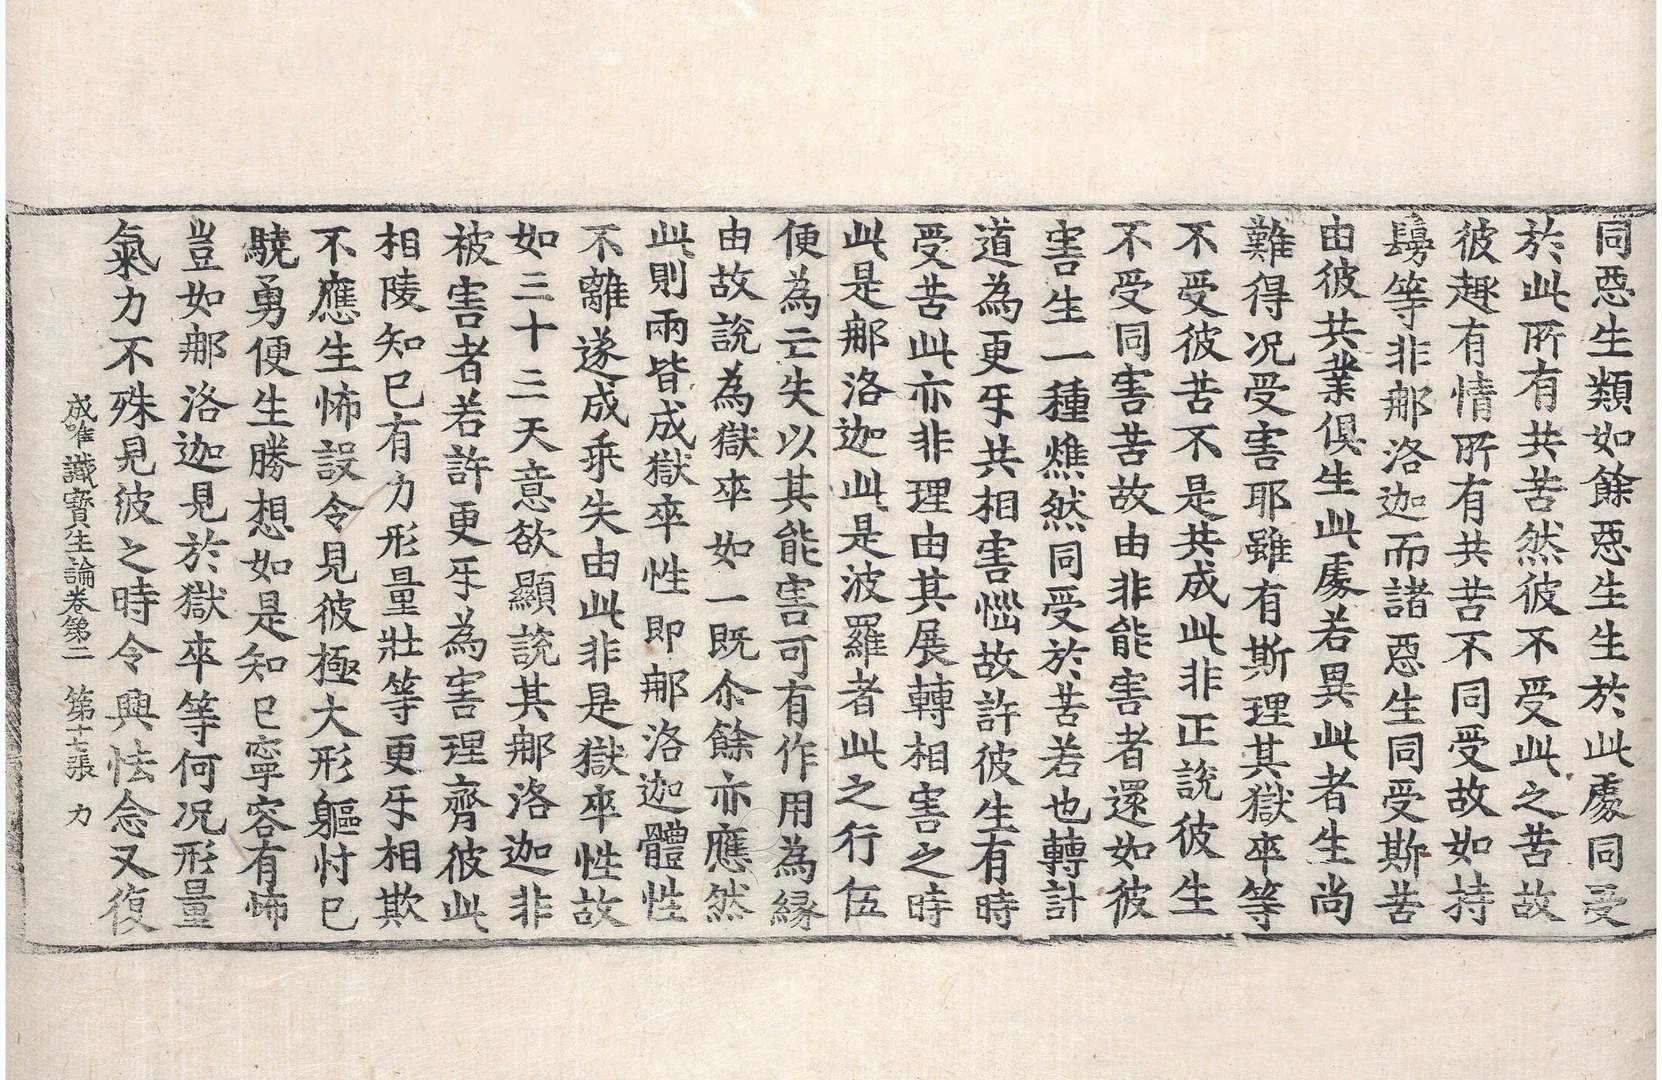 同惡生類如餘惡生生於此處同受
於此所有共苦然彼不受此之苦故
彼趣有情所有共苦不同受故如持
鬘等非那洛迦而諸惡生同受斯苦
由彼共業俱生此處若異此者生尚
難得况受害耶雖有斯理其獄卒等
不受彼苦不是共成此非正說彼生
不受同害苦故由非能害者還如彼
害生一種燋然同受於苦若也轉計
道為更牙共相害惱故許彼生有時
受苦此亦非理由其展轉相害之時
此是那洛迦此是波羅者此之行伍
便為亡失以其能害可有作用為縁
由故說為獄卒如一既尒餘亦應然
此則兩皆成獄卒性即那洛迦體性
不離遂成乖失由此非是獄卒性故
如三十三天意欲顯說其那洛迦非
被害者若許更牙為害理齊彼此
相陵知己有力形量壯等更牙相欺
不應生怖設令見彼極大形軀忖己
驍勇便生勝想如是知已寧容有怖
豈如那洛迦見於獄卒等何况形量
氣力不殊見彼之時令興怯念又復
成唯識寶生論卷第二 第十七張 力